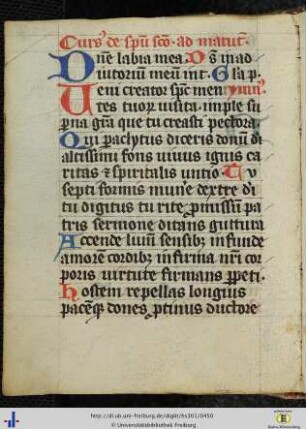 Curs᷒ de spū scō · ad matut᷑.
Dn̄e labia mea. Ds̄ in ad
iutoriū meū int̄. Gl̄a p̄.
Veni creator sp̄c men ymn᷒.
tes tuoꝝ visita · imple su
ꝑna grā que tu creasti pectora.
Qui paclytus diceris donū di
altissimi fons viuus ignis ca
ritas ⁊ spiritalis unctio. Tu
septiformis mūne dextre di
tu digitus tu rite ꝓmissū pa
tris sermone ditans guttura
Accende lumē sensibꝫ infunde
amorē cordibꝫ infirma nr̄i cor
poris virtute firmans ꝑpeti.
Hostem repellas longius
pacēqꝫ dones ꝓtinus ductore
http://dl.ub.uni-freiburg.de/diglit/hs301/0450
© Universitätsbibliothek Freiburg